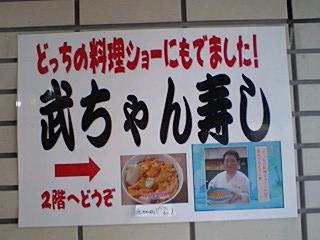 どっちの料理ショーにもでました!
武ちゃん寿し
2階へどうぞ